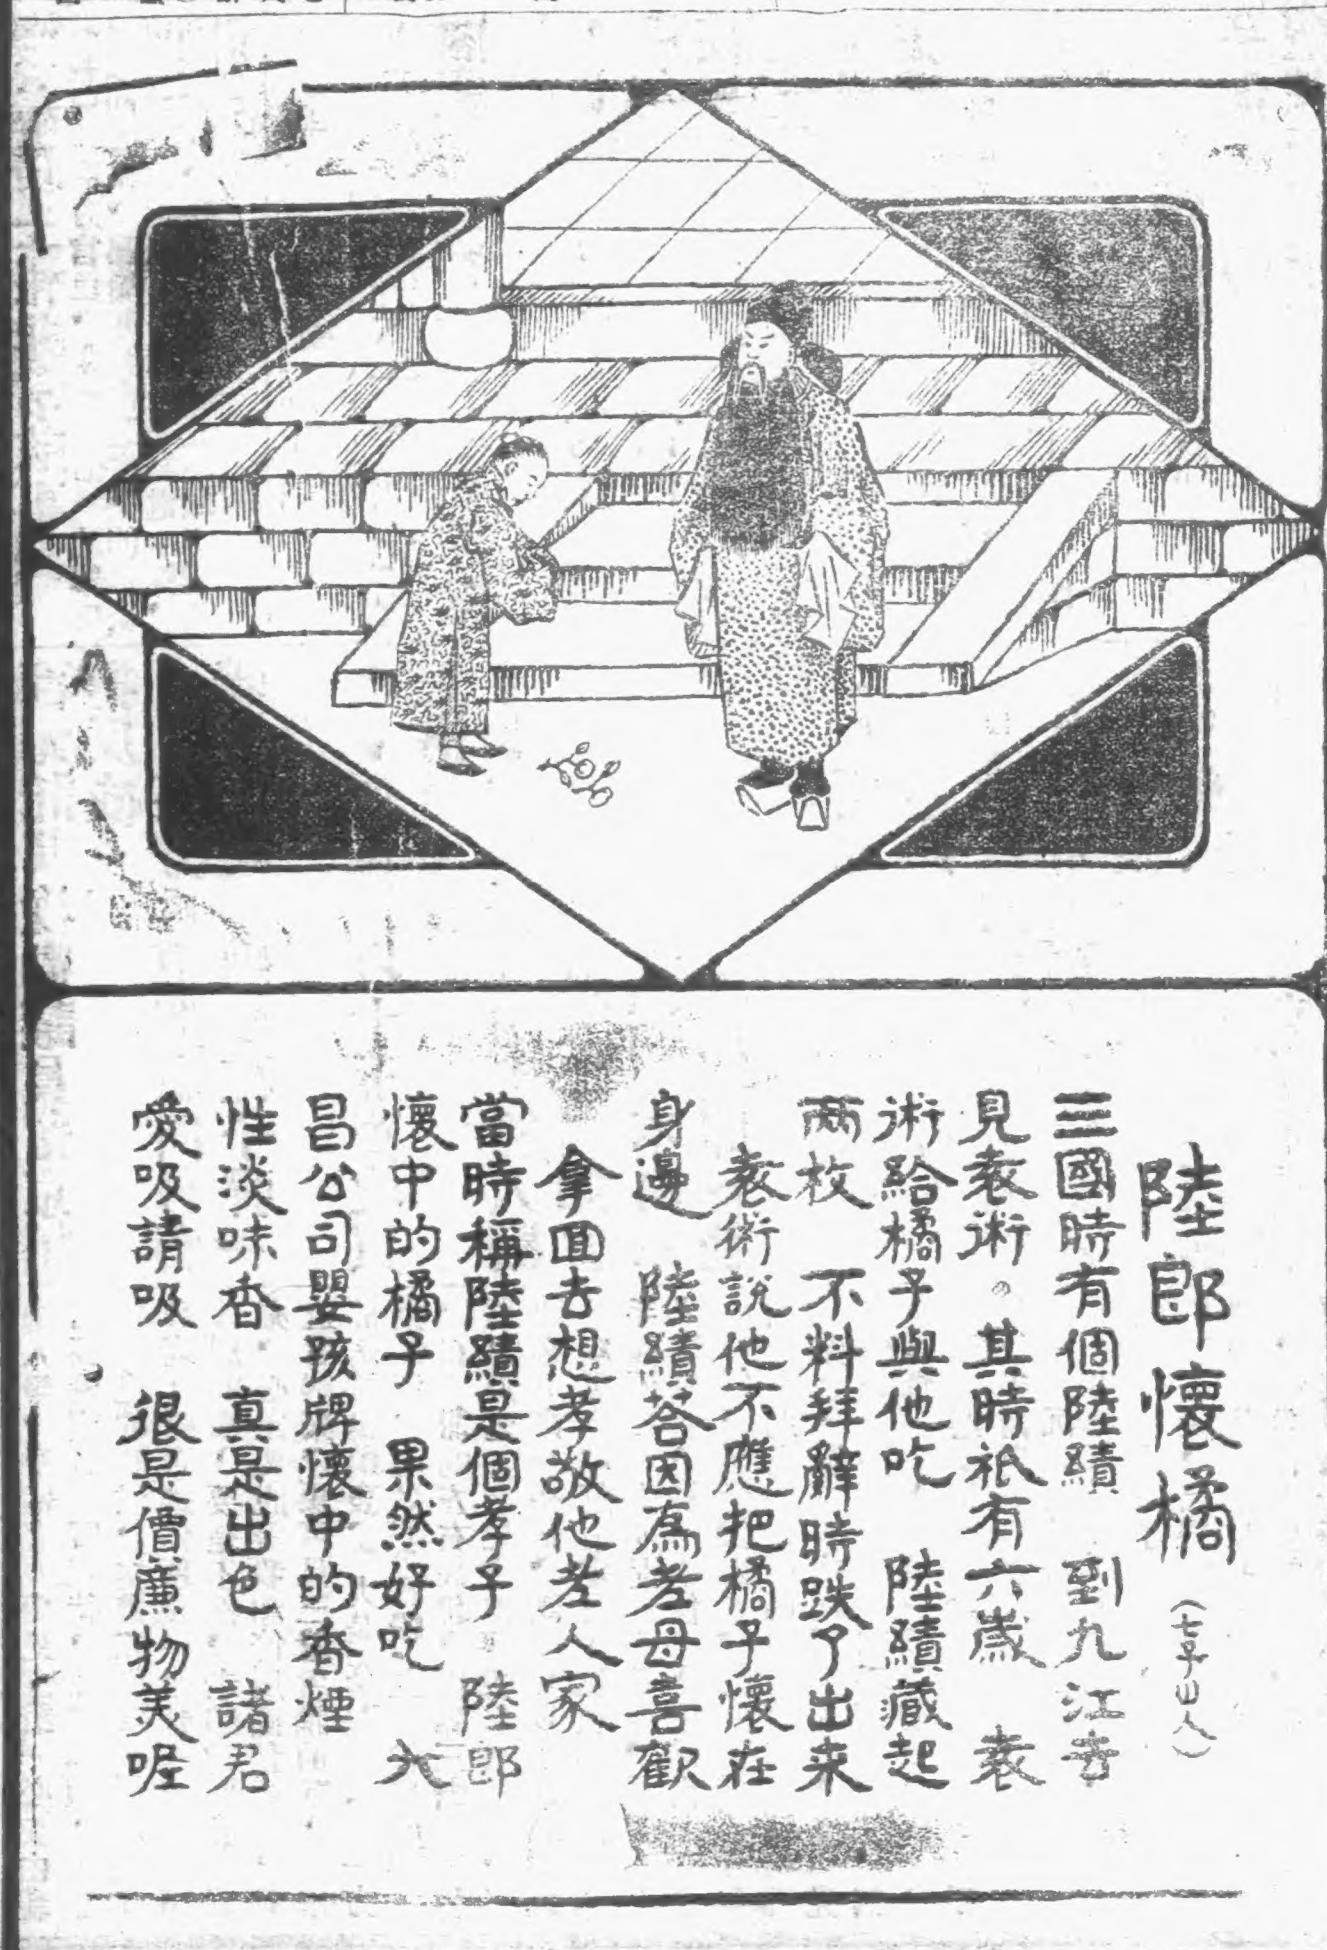 陸郎懷橘(七子山人)
三國時有個陸績 到九江去
見袁術。其時祇有六歲 袁
術給橘子與他吃 陸績藏起
兩枚 不料拜辭時跌了出来
袁術說他不應把橘子懷在
身邊 陸績荅因爲老母喜歡
拿囬去想孝敬他老人家
當時稱陸績是個孝子 陸郎
懷中的橘子 果然好吃 大
昌公司嬰孩牌懷中的香煙
性淡味香 真是出色 諸君
愛吸請吸 很是價廉物美喔